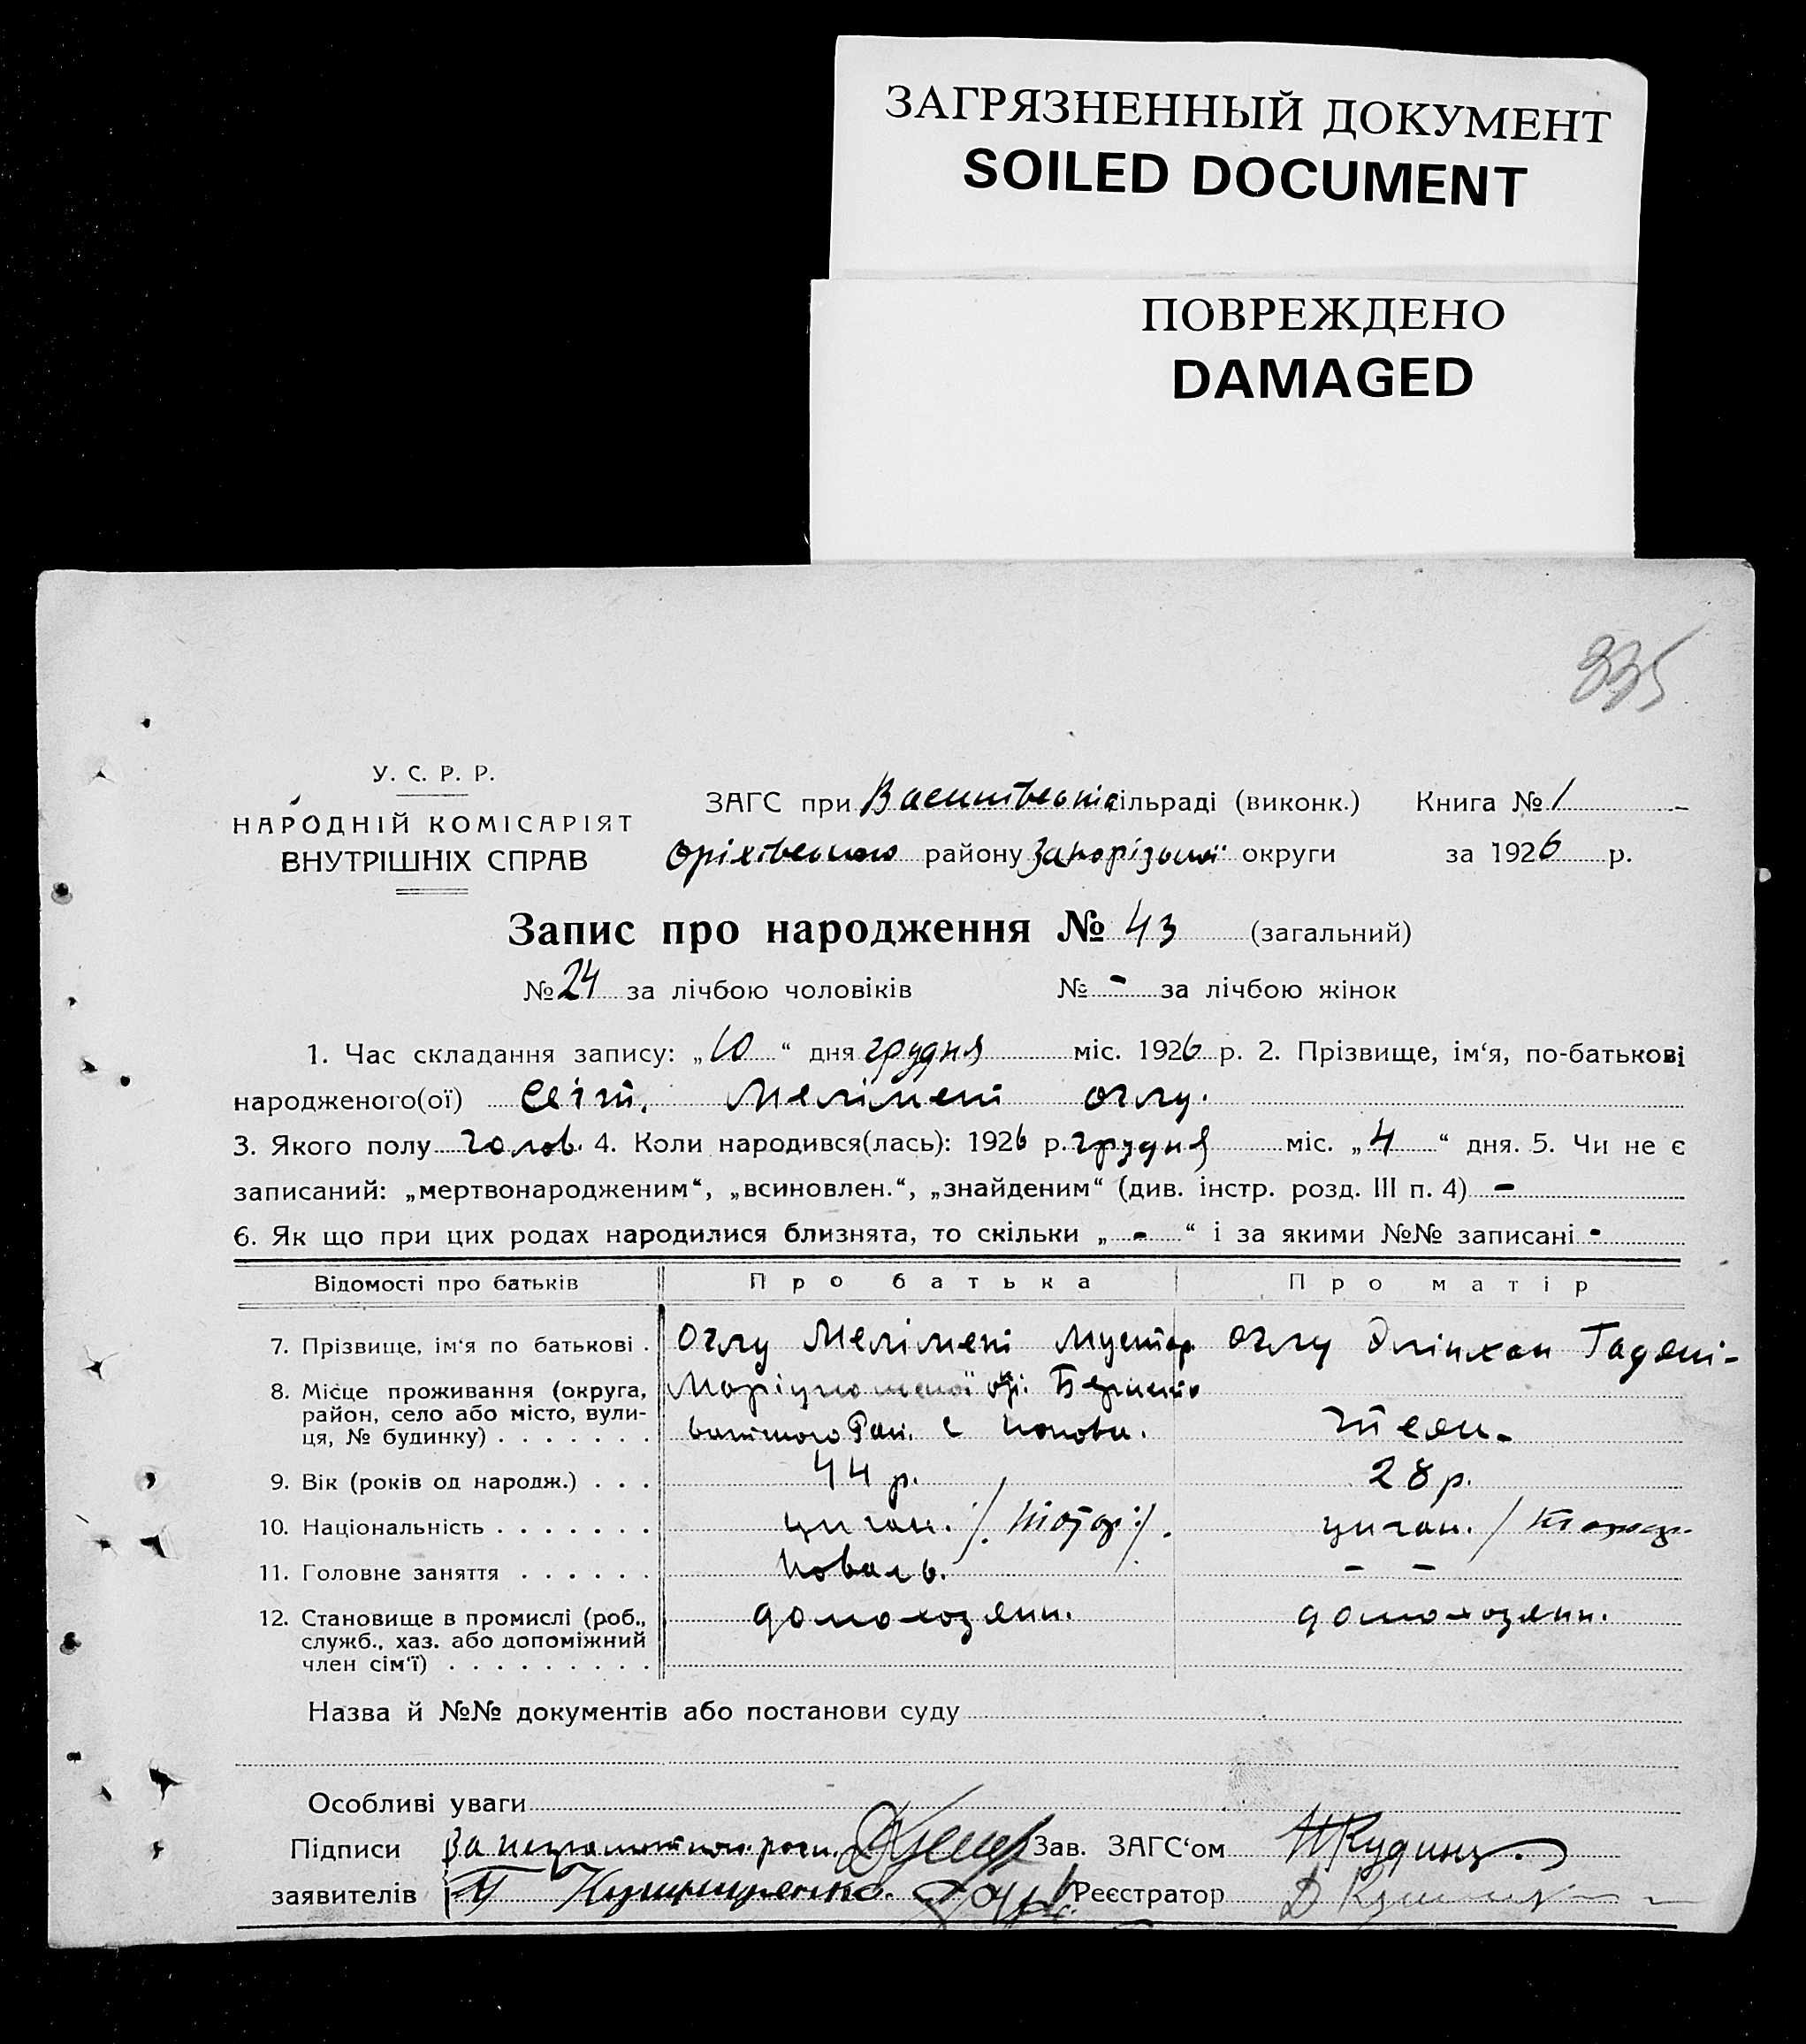 ЗАГРЯЗНЕННЫЙ ДОКУМЕНТ
SOILED DOCUMENT
ПОВРЕЖДЕНО
DAMAGED
335
У. С. Р. Р.
НАРОДНІЙ КОМІСАРІЯТ
ВНУТРІШНІХ СПРАВ
ЗАГС при сільраді (виконк.) Книга № 1
Оріхівського району Запорізької округи за 1926 р.
Запис про народження № 43 (загальний)
№ 24 за лічбою чоловіків № - за лічбою жінок
1. Час складання запису: „10“ дня грудня міс. 1926 р. 2. Прізвище, ім‘я, по-батькові
народженого(ої) Сеіт. оглу.
3. Якого полу чолов. 4. Коли народився(лась): 1926 р. грудня міс. „4“ дня. 5. Чи не є
записаний: „мертвонародженим“, „всиновлен.“, „знайденим“ (див. інстр. розд. III п. 4) -
6. Як що при цих родах народилися близнята, то скільки „-“ і за якими №№ записані -
Відомості про батьків Про батька Про матір
7. Прізвище, ім‘я по батькові . Оглу оглу
8. Місце проживання (округа,
район, село або місто, вули-
ця, № будинку) . . . . . . .
9. Вік (років од народж.) . . . 44 р. 28 р.
10. Національність . . . . . . . циган. циган.
11. Головне заняття . . . . . . Коваль. - -
12. Становище в промислі (роб., домохозяин. домохозяин.
служб., хаз. або допоміжний
член сім‘ї) . . . . . . . . .
Назва й №№ документів або постанови суду
Особливі уваги
Підписи Зав. ЗАГС‘ом
заявителів Реєстратор